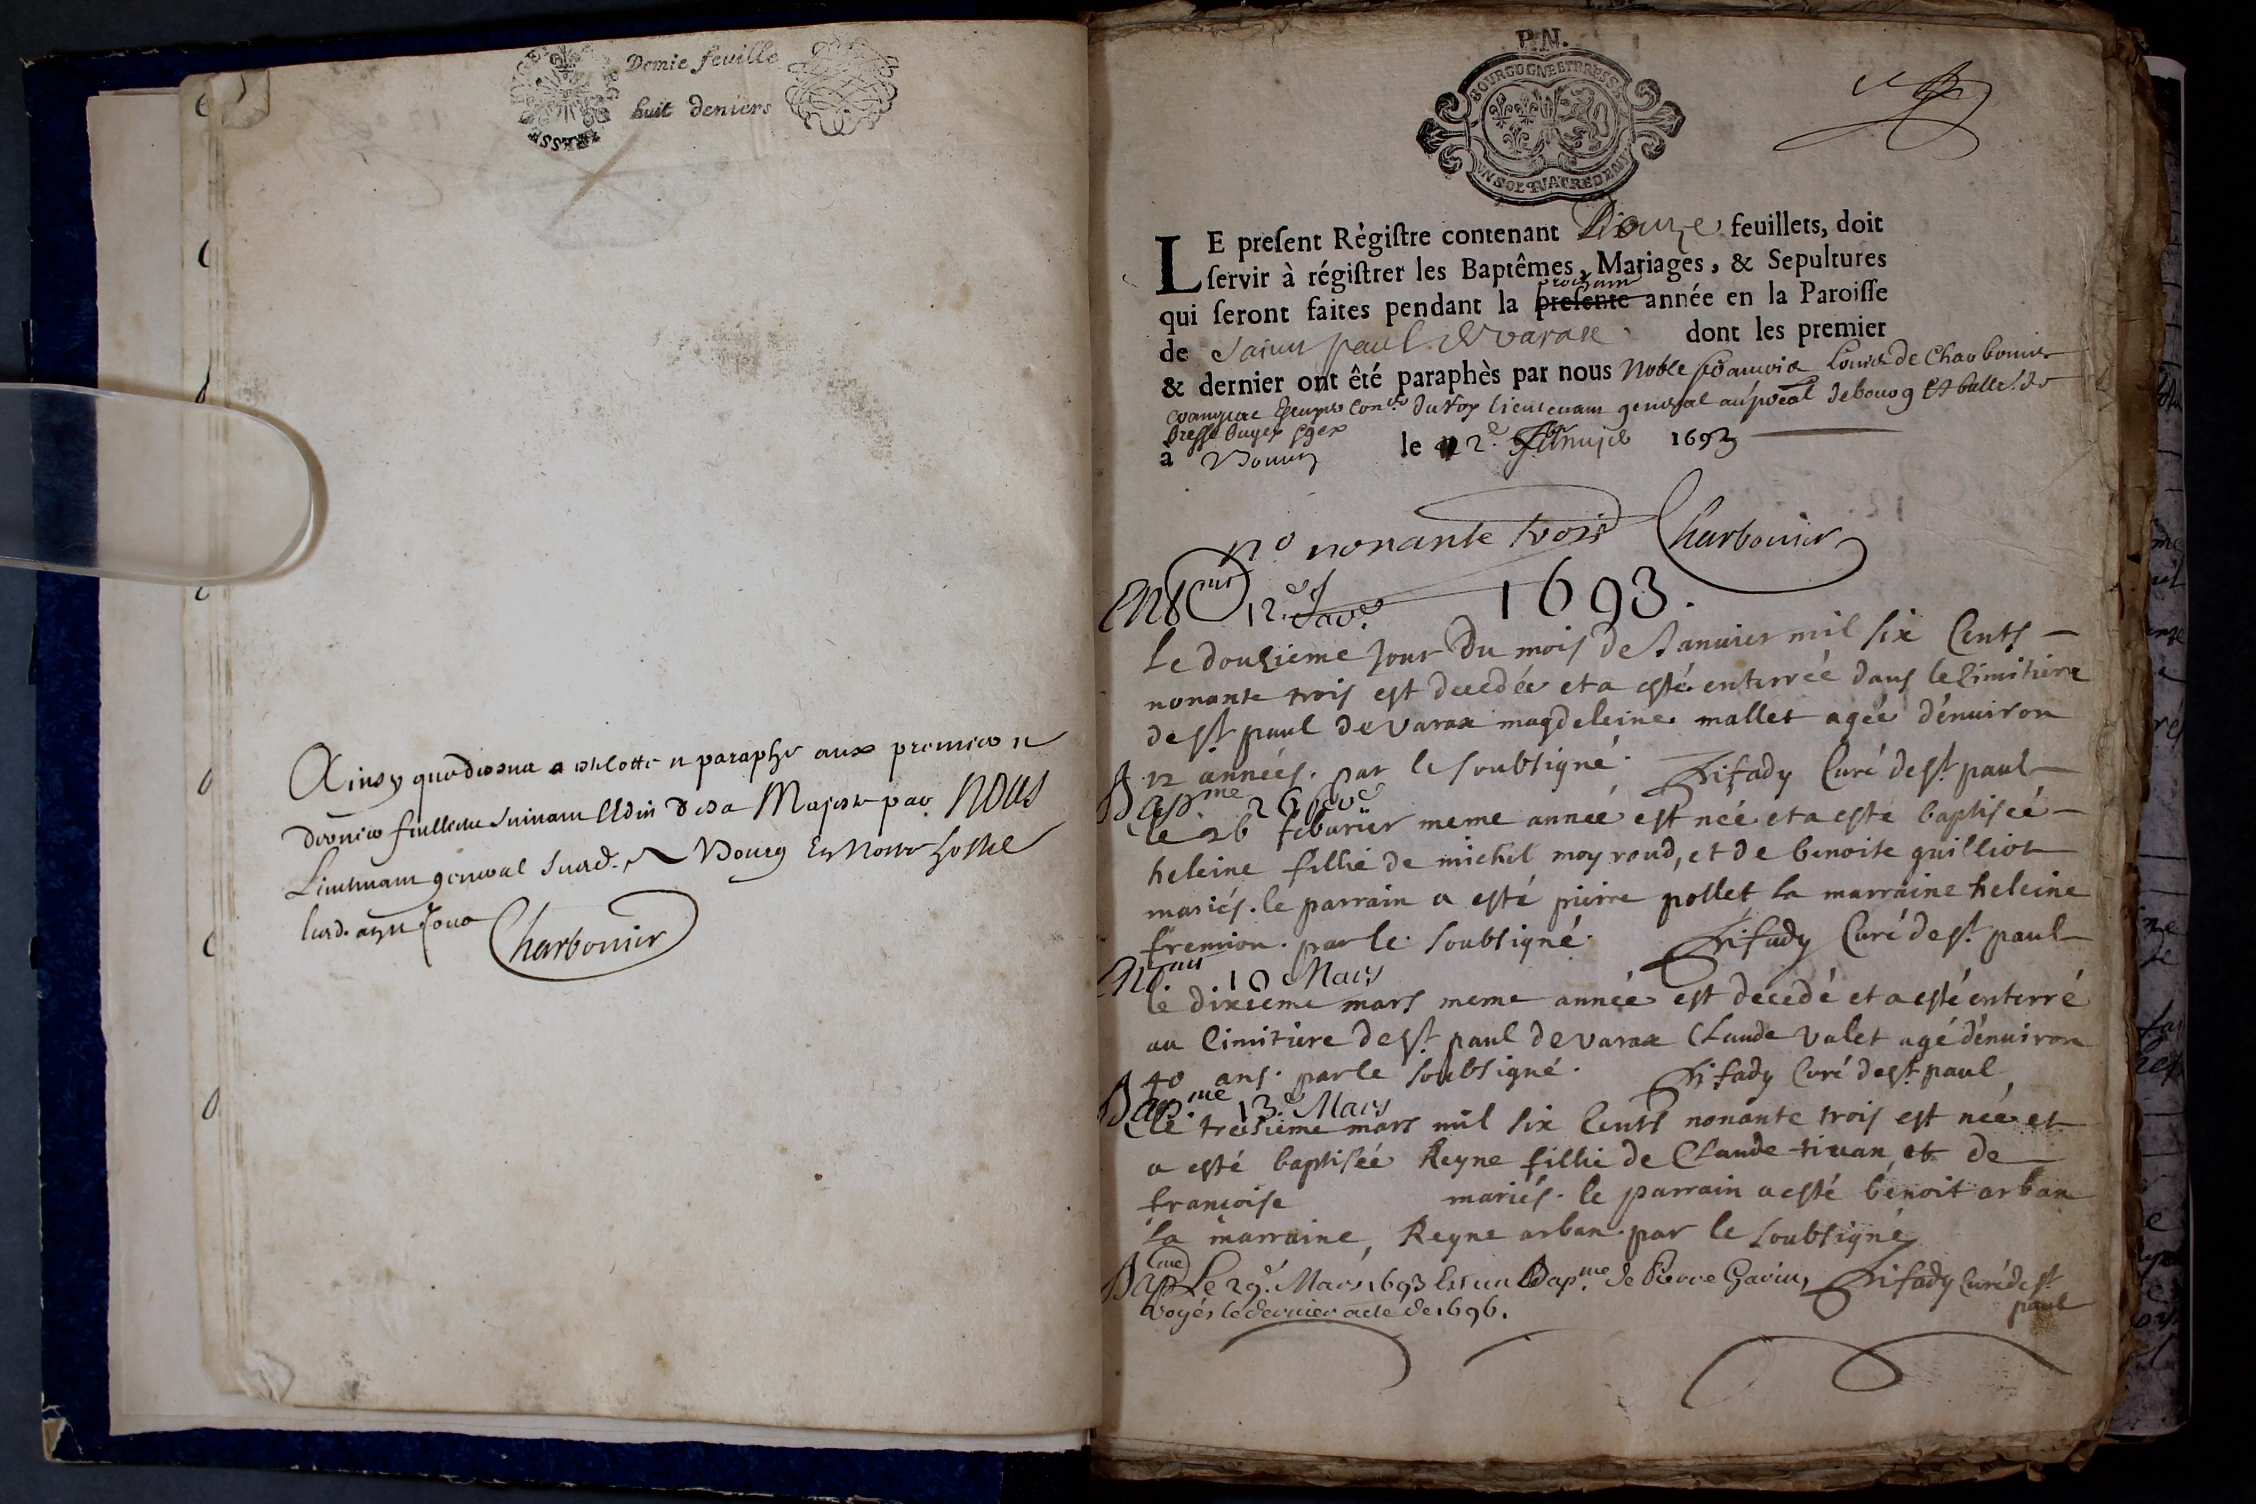 Demie feuille
huit deniers
Ainsy que dessus a esté cotté et paraphé aux premier et
dernier feuillets suivant l'Edit de sa Majesté par NOUS
Lieutenant general susd. a Bourg En Nostre hostel
lesd. an et jour
Charbonier
P.N.
BOURGOGNE ET BRESSE
UN SOL QUATRE DEN
LE present Régistre contenant Douze feuillets, doit
servir à régistrer les Baptêmes, Mariages, & Sepultures
prochaine
qui seront faites pendant la presente année en la Paroisse
de Saint paul de varax dont les premier
& dernier ont êté paraphès par nous Noble François Louis de Charbonier
Escuyer Con.er du Roy lieutenant general au de bourg
Bresse bugey
à Bourg le 2e 1693
no nonante trois Charbonier
1693.
Ent 12.e Jav.
Le douzieme jour du mois de Januier mil six Cents
nonante trois est decedée et a esté enterrée dans le Cimitiere
de st paul de varax magdeleine mallet agée d'enuiron
12 années. par le soubsigné. Sifady Curé de st. paul
Bap.me 26 fev.
le 26 feburier meme année est née et a esté baptisée
heleine fillie de michel moyroud, et de benoite guilliot
mariés. le parrain a esté pierre pollet la marraine heleine
fremion. par le soubsigné. Sifady Curé de st. paul
Ent. 10 Mars
le dixieme mars meme année est decedé et a esté enterré
au Cimitiere de st. paul de varax Claude valet agé d'enuiron
40 ans. par le soubsigné. Sifady Curé de st. paul
Bap.me 13.e Mars
le treisieme mars mil six Cents nonante trois est née et
a esté baptisée Reyne fillie de Claude tiuan et de
francoise mariés. le parrain a esté benoit arban
la marraine, Reyne arban. par le soubsigné
Bap.me Le 29.e Mars 1693 Est un Bap.me de Pierre Gavin, Sifady Curé de st.
voyés le dernier acte de 1696. paul